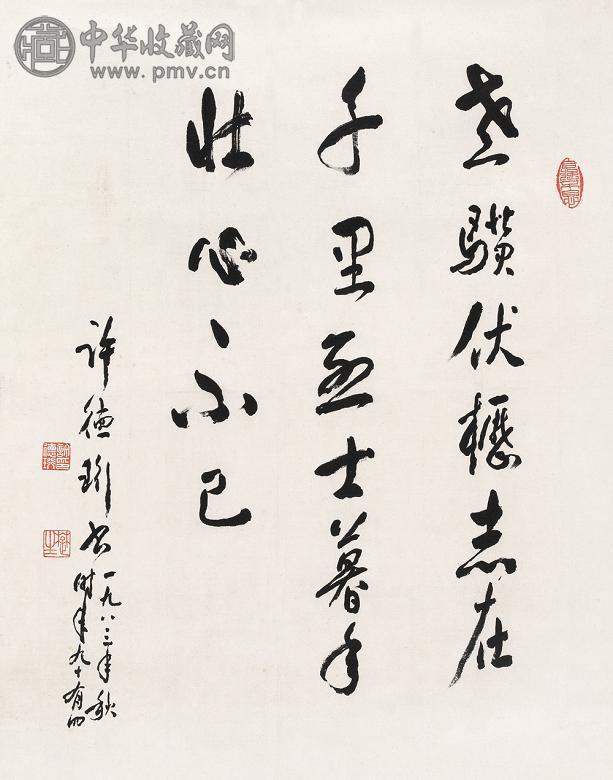 老骥伏枥志在
千里烈士暮年
壮心不已
许德珩书
一九八三年秋
时年九十有四
中华收藏网
www.pmv.cn